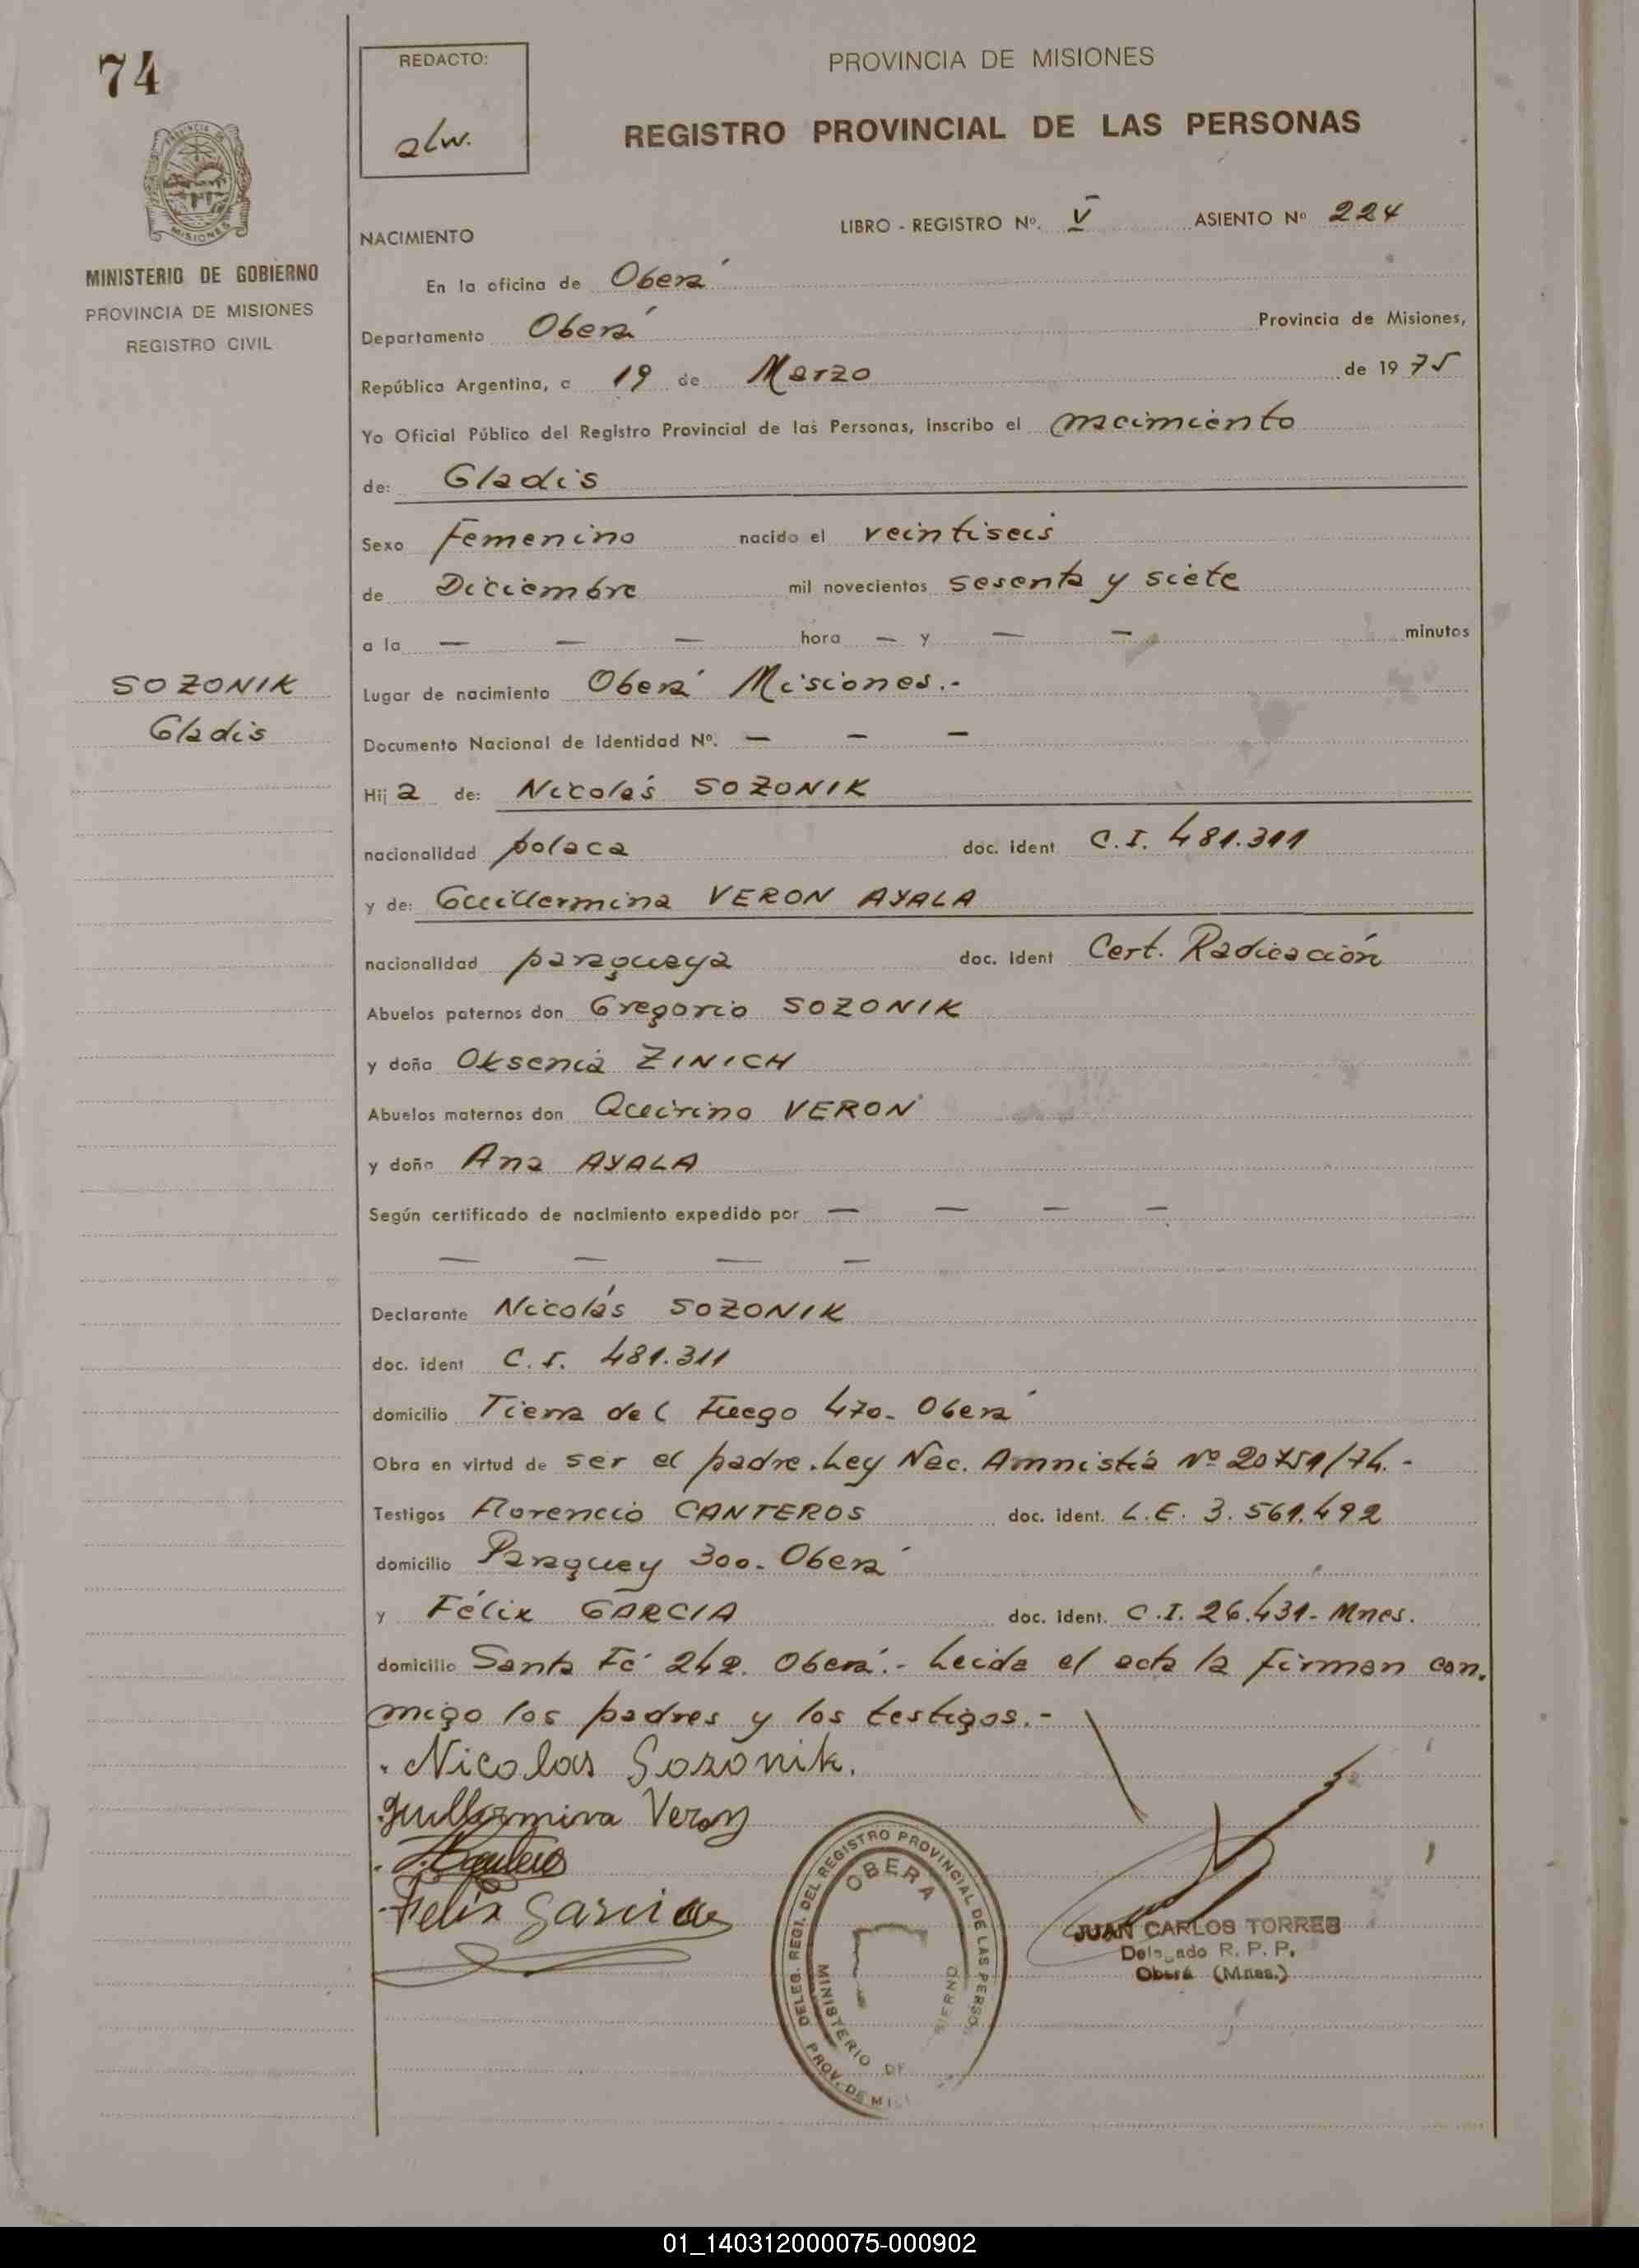 74
REDACTO:
alw.
PROVINCIA DE MISIONES
REGISTRO PROVINCIAL DE LAS PERSONAS
PROVINCIA DE
MISIONES
MINISTERIO DE GOBIERNO
PROVINCIA DE MISIONES
REGISTRO CIVIL
NACIMIENTO
LIBRO - REGISTRO Nº. V ASIENTO Nº 224
En la oficina de Oberá
Departamento Oberá Provincia de Misiones,
República Argentina, a 19 de Marzo de 1975
Yo Oficial Público del Registro Provincial de las Personas, inscribo el nacimiento
de: Gladis
Sexo Femenino nacido el veintiseis
de Diciembre mil novecientos sesenta y siete
a la — — — hora — y — — minutos
SOZONIK
Gladis
Lugar de nacimiento Oberá Misiones.-
Documento Nacional de Identidad Nº. — — —
Hija de: Nicolás SOZONIK
nacionalidad polaca doc. ident C.I. 481.311
y de: Guillermina VERON AYALA
nacionalidad paraguaya doc. ident Cert. Radicación
Abuelos paternos don Gregorio SOZONIK
y doña Oksenia ZINICH
Abuelos maternos don Quirino VERON
y doña Ana AYALA
Según certificado de nacimiento expedido por — — — —
— — — —
Declarante Nicolás SOZONIK
doc. ident C.I. 481.311
domicilio Tierra del Fuego 470- Oberá
Obra en virtud de ser el padre. Ley Nac. Amnistía Nº 20751/74.-
Testigos Florencio CANTEROS doc. ident. L.E. 3.561.492
domicilio Paraguay 300- Oberá
y Félix GARCIA doc. ident. C.I. 26.431- Mnes.
domicilio Santa Fé 242. Oberá.- Leida el acta la firman con,
migo los padres y los testigos.-
Nicolas Sozonik.
Guillermina Veron
Felix Garcia
DELEG. REGI. DEL REGISTRO PROVINCIAL DE LAS PERSO
OBERA
MINISTERIO DE
PROV. DE MI
JUAN CARLOS TORRES
Delegado R. P. P.
Oberá (Mnes.)
01_140312000075-000902